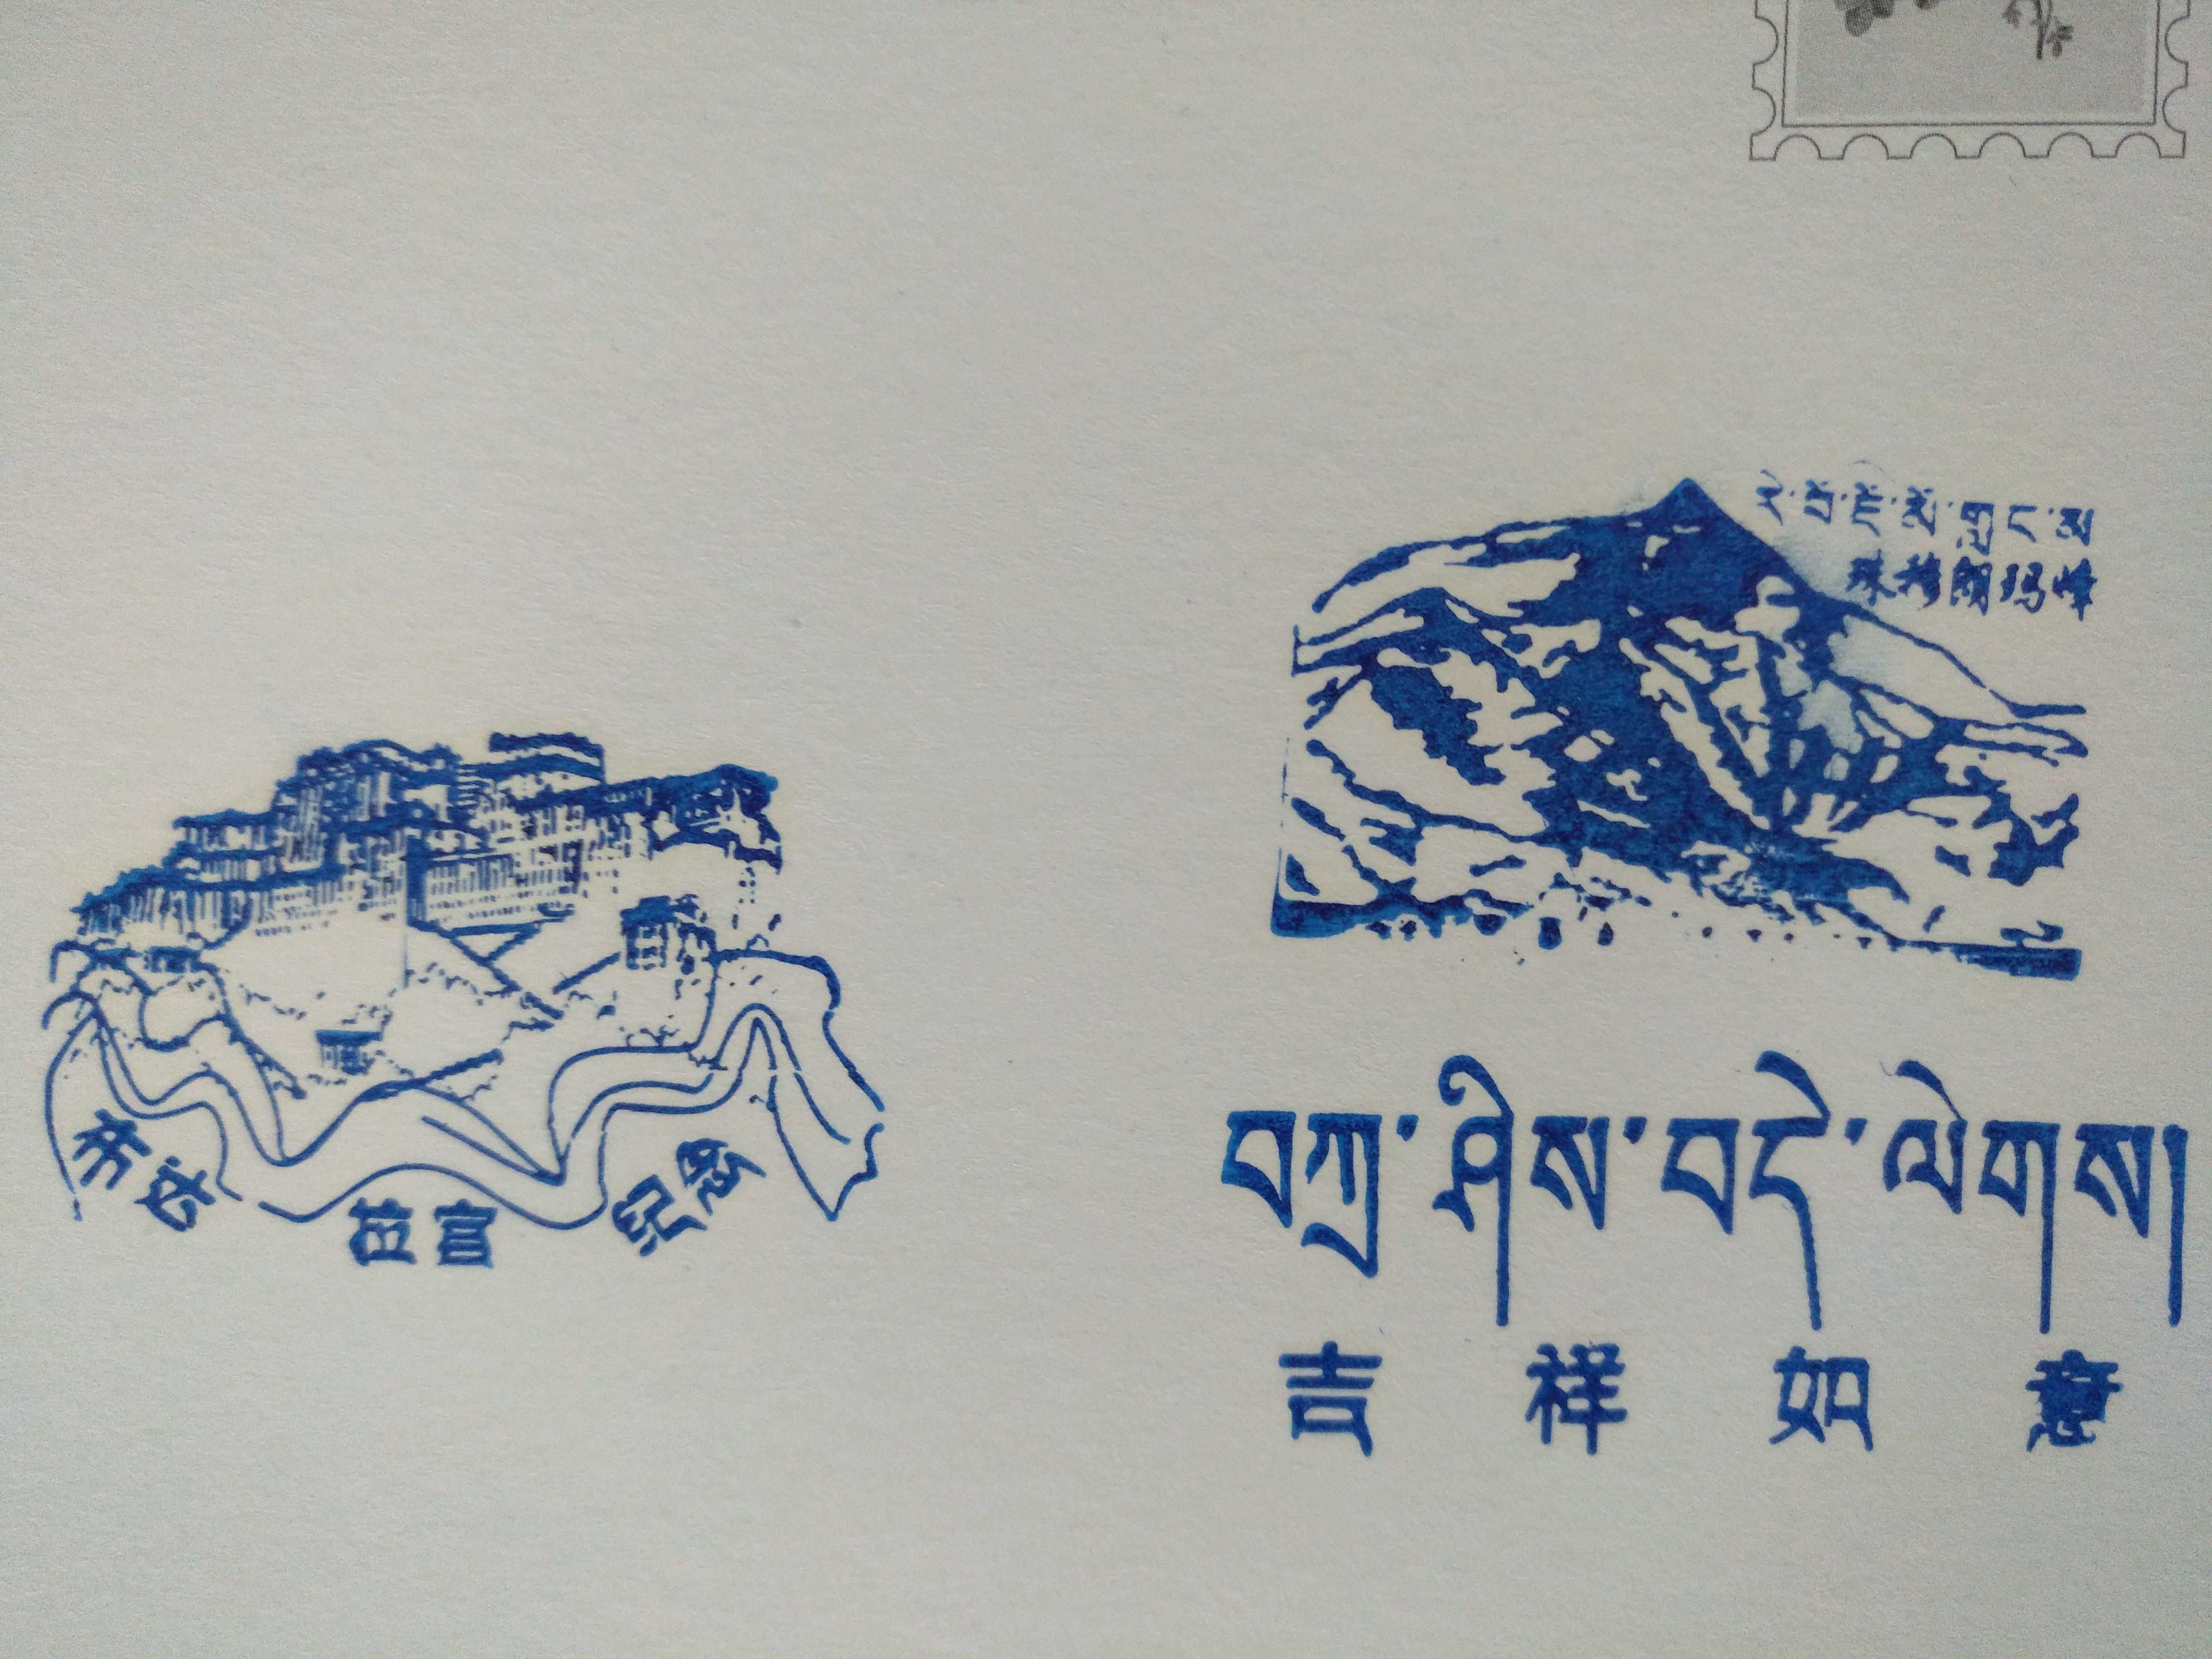 རི་བོ་ཇོ་མོ་གླང་མ
珠穆朗玛峰
布达拉宫纪念
བཀྲ་ཤིས་བདེ་ལེགས།
吉祥如意